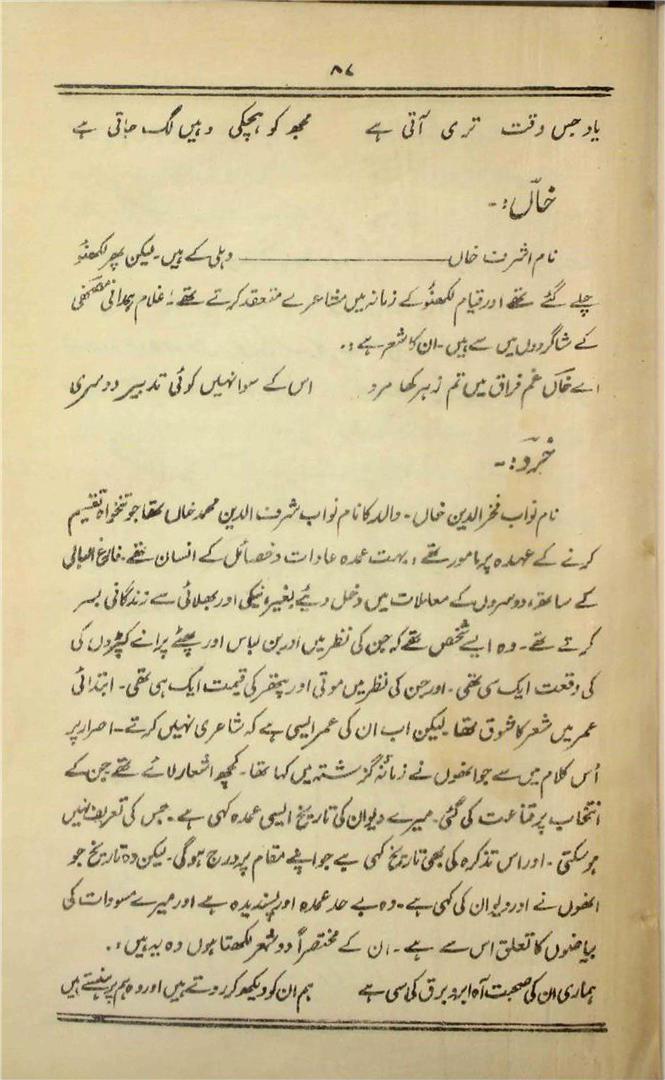 ۸۷
یاد جس وقت تری آتی ہے مجھ کو ہچکی وہیں لگ جاتی ہے
خاںؔ:-
نام اشرف خاں ــــــــ دہلی کے ہیں۔ لیکن پھر لکھنؤ
چلے گئے تھے اور قیام لکھنؤ کے زمانہ میں مشاعرے منعقد کرتے تھے۔ غلام ہمدانی مصحفی
کے شاگردوں میں سے ہیں۔ ان کا شعر ہے:۔
اے خاںؔ غم فراق میں تم زہر کھا مرو اس کے سوا نہیں کوئی تدبیر دوسری
خردؔ:-
نام نواب فخر الدین خاں۔ والد کا نام نواب شرف الدین محمد خاں تھا جو تنخواہ تقسیم
کرنے کے عہدہ پر مامور تھے، بہت عمدہ عادات و خصائل کے انسان تھے۔ فارغ البالی
کے ساتھ، دوسروں کے معاملات میں دخل دیئے بغیر، نیکی اور بھلائی سے زندگانی بسر
کرتے تھے۔ وہ ایسے شخص تھے کہ جن کی نظر میں لباس اور پھٹے پرانے کپڑوں کی
کی وقعت ایک سی تھی۔ اور جن کی نظر میں موتی اور پتھر کی قیمت ایک ہی تھی۔ ابتدائی
عمر میں شعر کا شوق تھا لیکن اب ان کی عمر ایسی ہے کہ شاعری نہیں کرتے۔ اصرار پر
اُس کلام میں سے جو انھوں نے زمانۂ گزشتہ میں کہا تھا۔ کچھ اشعار لائے تھے جن کے
انتخاب پر قناعت کی گئی۔ میرے دیوان کی تاریخ ایسی عمدہ کہی ہے۔ جس کی تعریف نہیں
ہو سکتی۔ اور اس تذکرہ کی بھی تاریخ کہی ہے جو اپنے مقام پر درج ہوگی۔ لیکن وہ تاریخ جو
انھوں نے اور دیوان کی کہی ہے۔ وہ بے حد عمدہ اور پسندیدہ ہے اور میرے مسودات کی
بیاضوں کا تعلق اس سے ہے۔ ان کے مختصراً دو شعر لکھتا ہوں وہ یہ ہیں:۔
ہماری ان کی صحبت آہ ابر و برق کی سی ہے ہم ان کو دیکھ کر روتے ہیں اور وہ ہم پر ہنستے ہیں